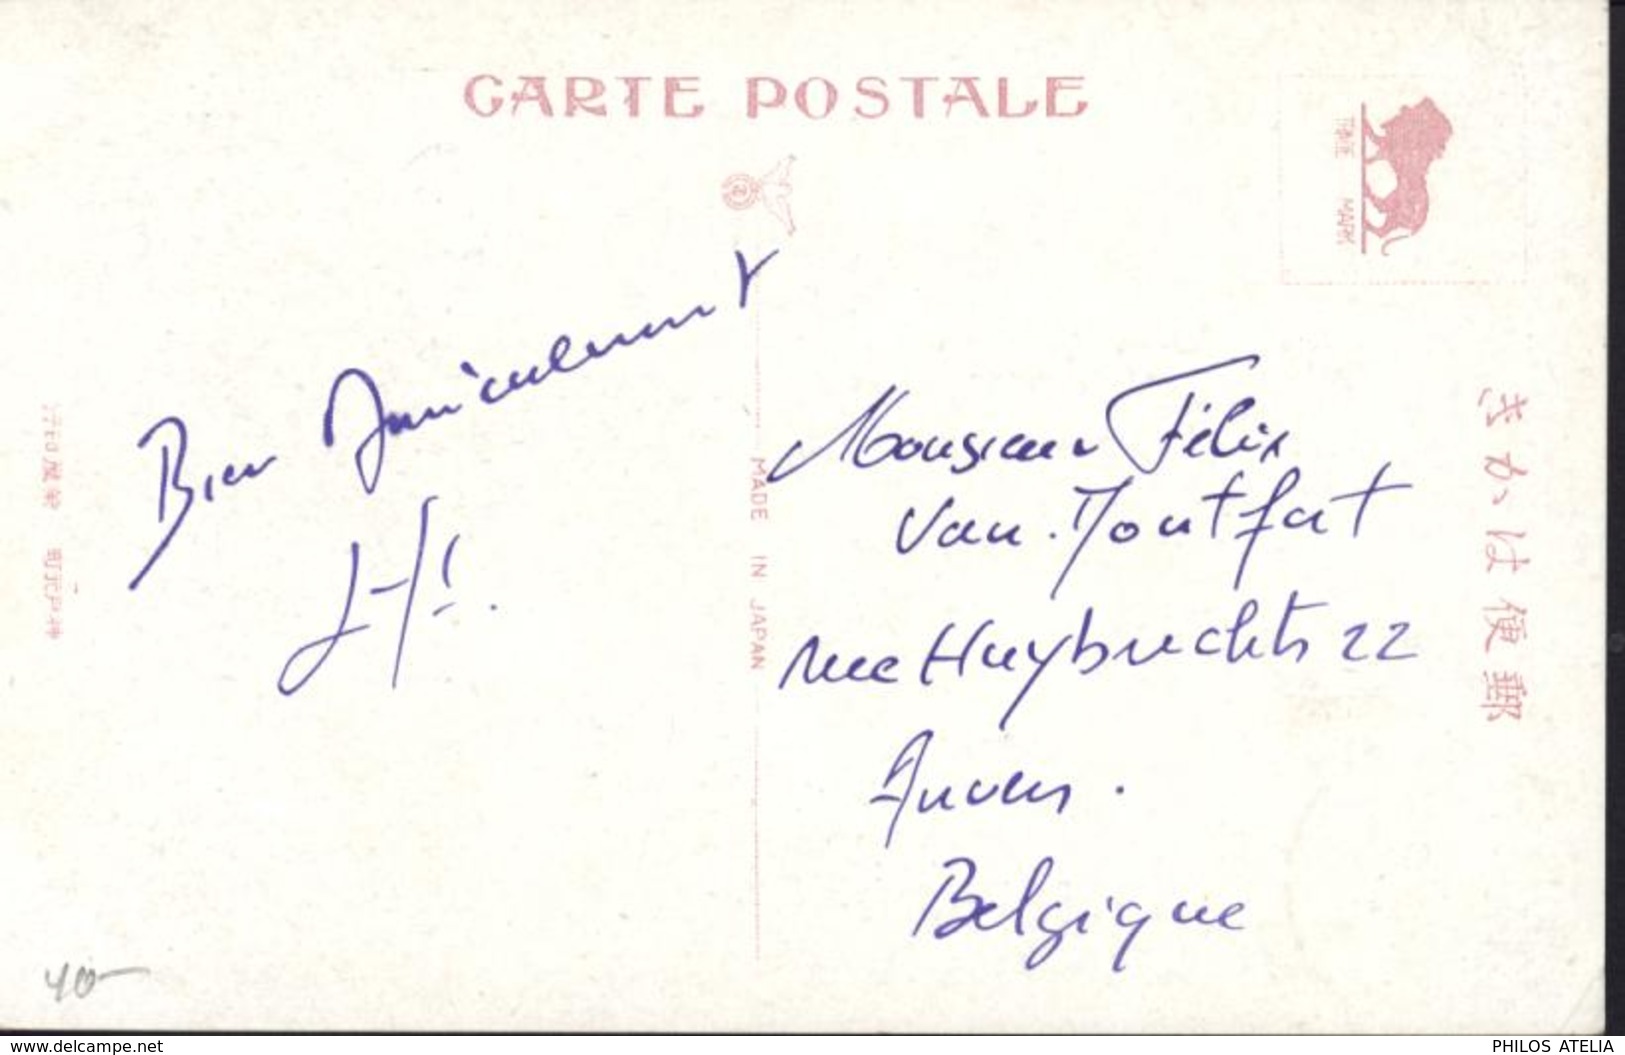 CARTE POSTALE
TRADE MARK
Bien Amicalement
Monsieur Félix
Van. Montfort
rue Huybrechts 22
Anvers.
Belgique
MADE IN JAPAN
きかは便郵
40-
www.delcampe.net
PHILOS ATELIA